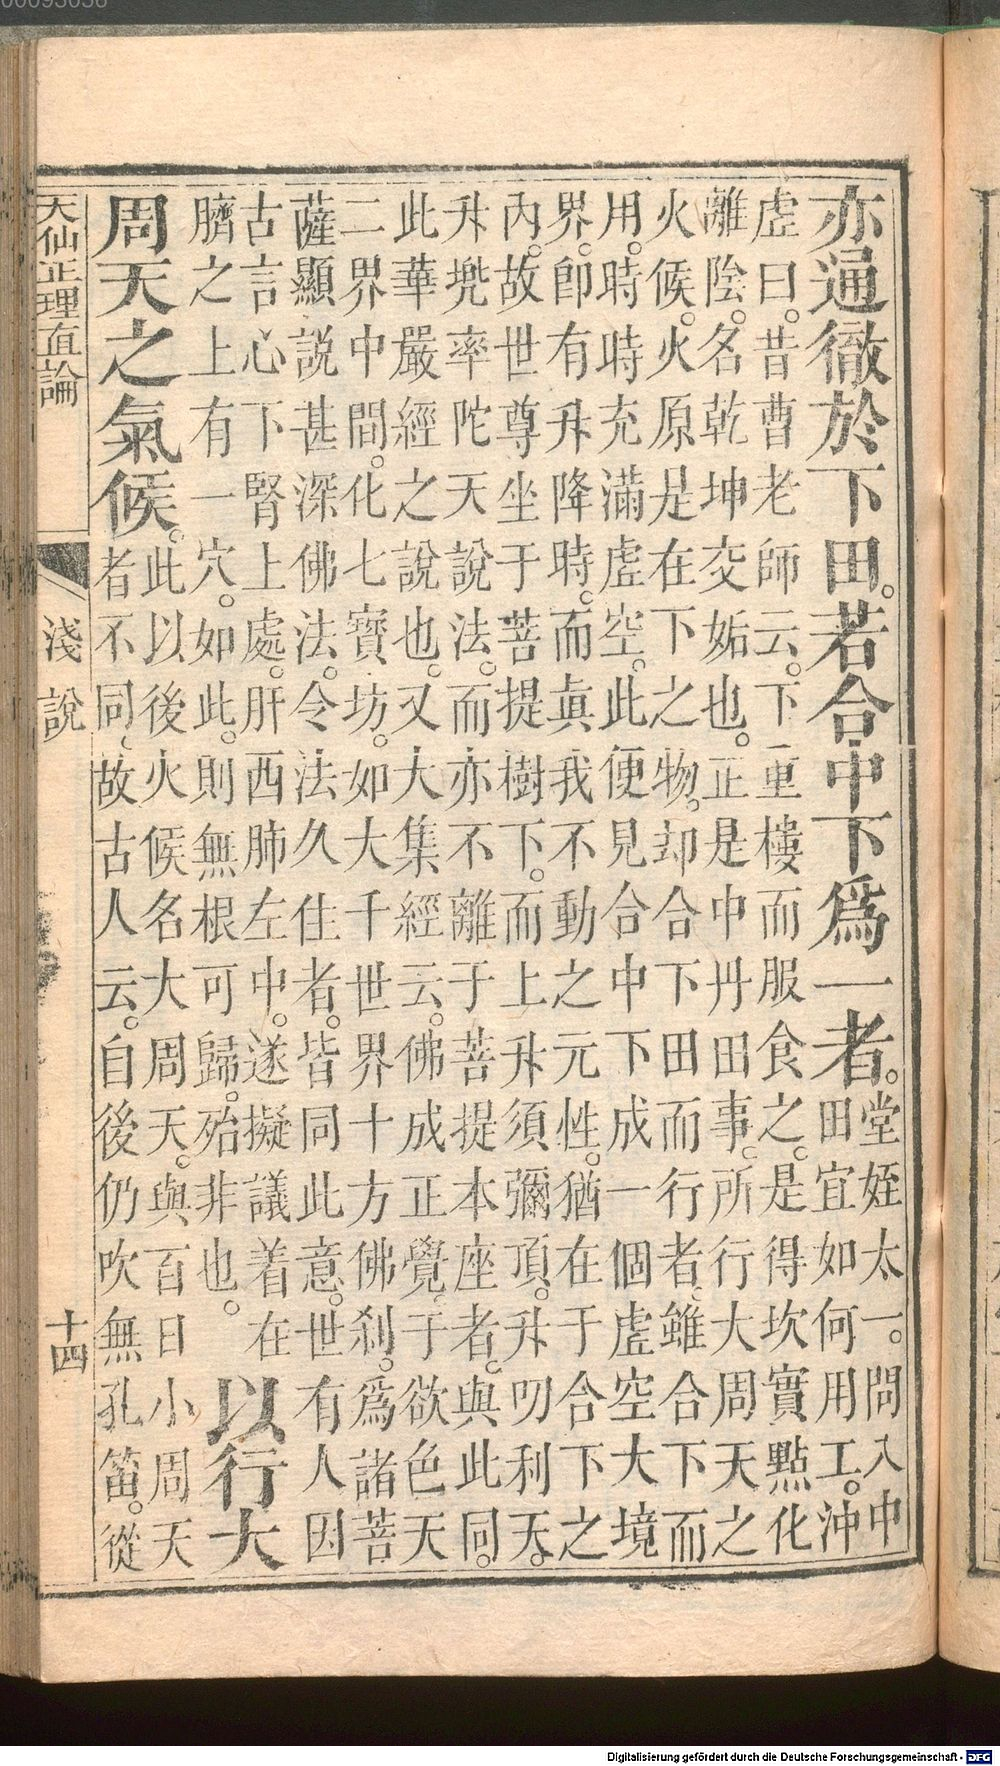 00095036
亦通徹於下田。若合中下爲一者。堂姪太一。問入中
田宜如何用工。沖
虛曰。昔曹老師云。下重樓而服食之。是得坎實點化
離陰。名乾坤交姤也。正是中丹田事。所行大周天之
火候。火原是在下之物。却合下田而行者。雖合下而
用。時時充滿虛空。此便見合中下成一個虛空大境
界。卽有升降時。而眞我不動之元性。猶在于合下之
內。故世尊坐于菩提樹下。而上升須彌頂。升叨利天。
升兠率陀天說法。而亦不離于菩提本座者。與此同。
此華嚴經之說也。又大集經云。佛成正覺。于欲色天
二界中間。化七寶坊。如大千世界十方佛刹。爲諸菩
薩顯說甚深佛法。令法久住者。皆同此意。世有人因
古言心下腎上處。肝西肺左中。遂擬議着在
臍之上有一穴。如此。則無根可歸。殆非也。以行大
周天之氣候。此以後火候名大周天。與百日小周天
者不同、故古人云。自後仍吹無孔笛。從
天仙正理直論 淺說 十四
Digitalisierung gefördert durch die Deutsche Forschungsgemeinschaft - DFG